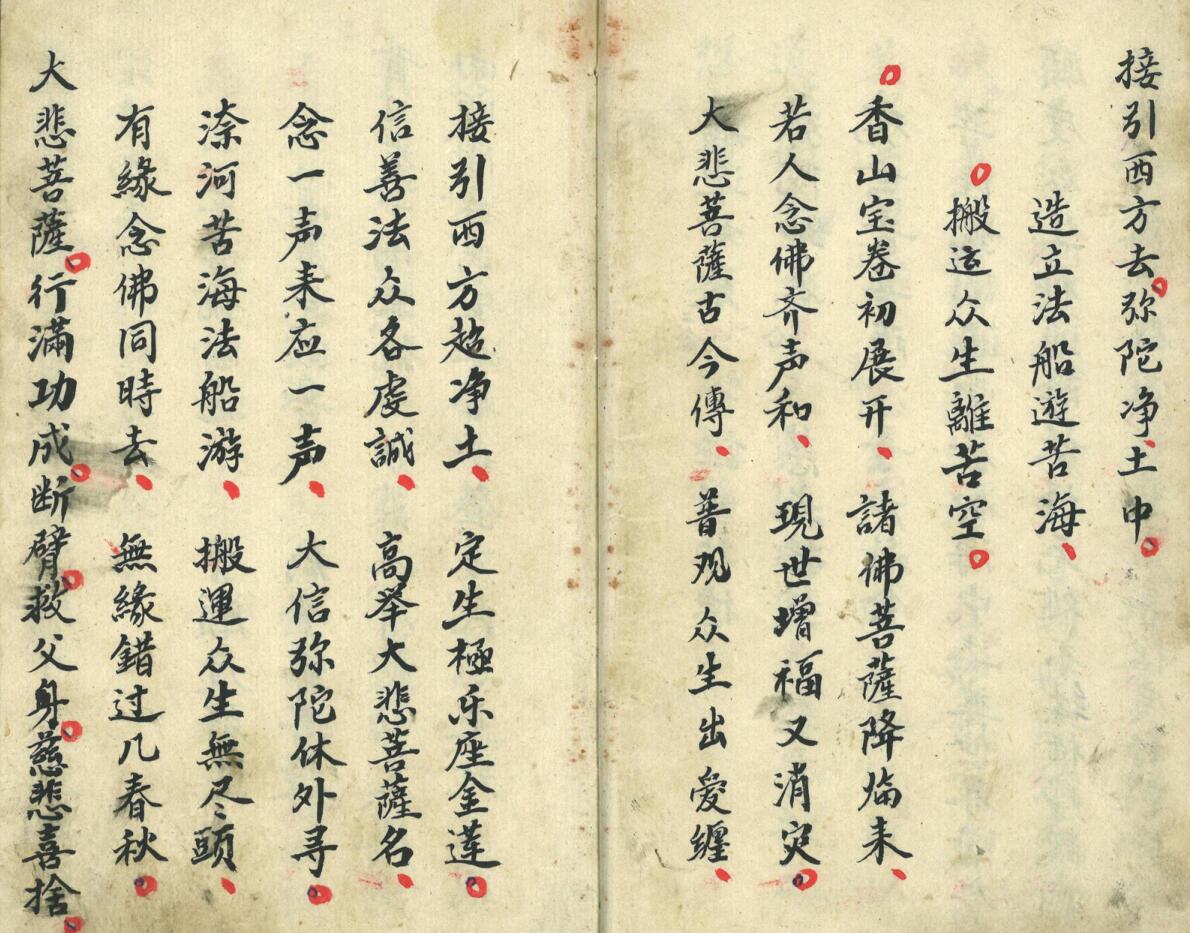 接引西方去弥陀净土中
造立法船遊苦海
搬运众生離苦空
香山宝卷初展开 諸佛菩薩降临来
若人念佛齐声和 現世增福又消灾
大悲菩薩古今傳 普观众生出愛纏
接引西方超净土 定生極乐座金莲
信善法众各虔誠 高举大悲菩薩名
念一声来应一声 大信弥陀休外寻
渿河苦海法船游 搬運众生無尽頭
有緣念佛同時去 無緣錯过几春秋
大悲菩薩行滿功成断臂救父身慈悲喜捨